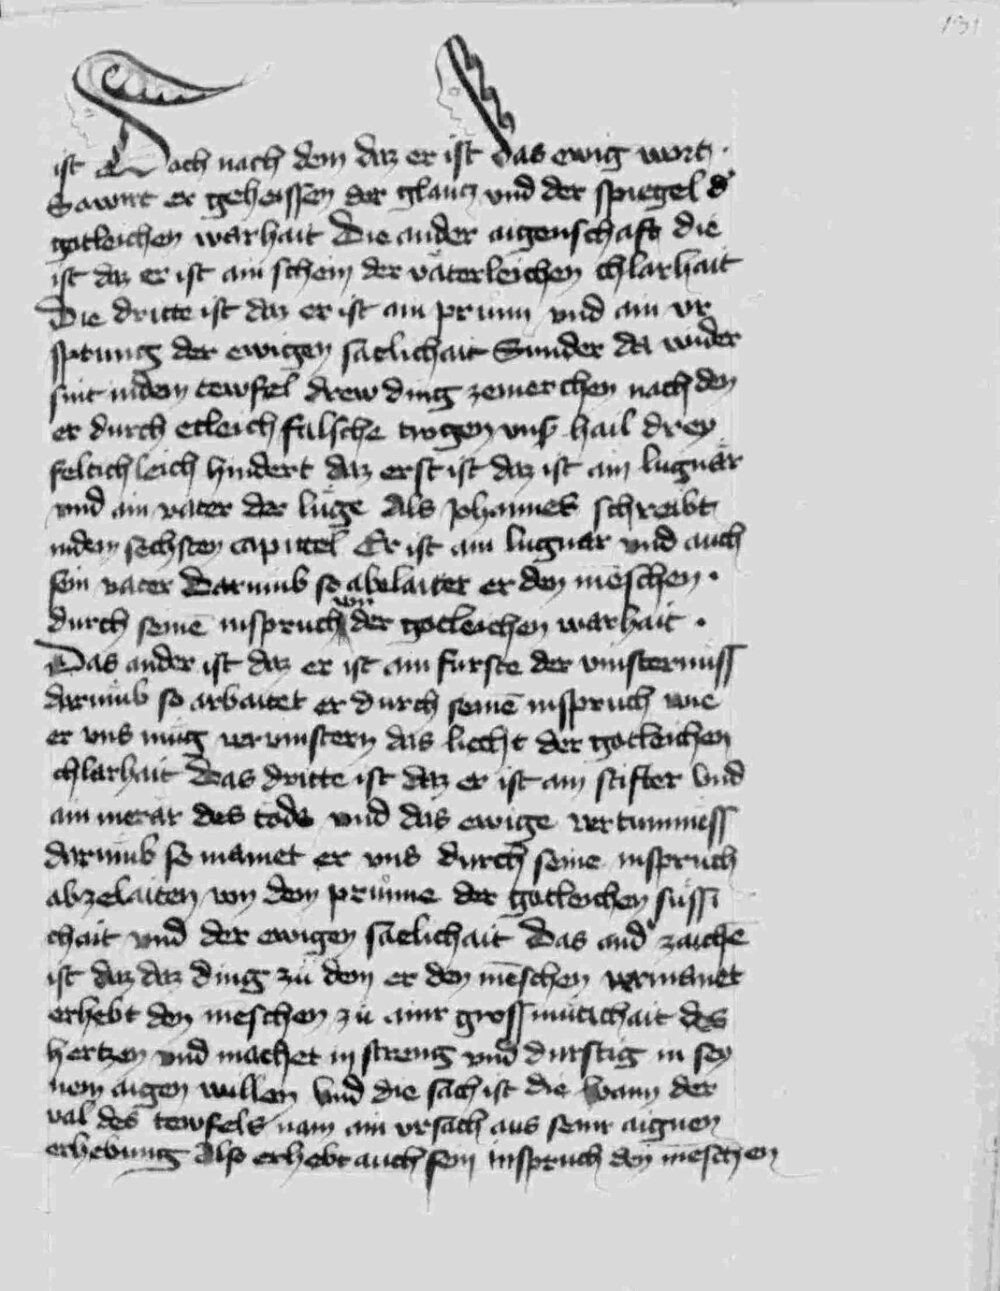 131
ist Doch nach dem daz er ist das ewig wort ·
So wirt er gehaissen der glancz und der spiegel d'
gotleichen warhait Die ander aigenschaft die
ist daz er ist ain schein der väterleichen chlarhait
Die dritte ist daz er ist ain prunn und ain ur
sprung der ewigen saelichait Sunder da wider
sint in dem tewfel drew ding ze merchen nach den
er durch etleich falsche trogen uns hail drey
feltichleich hindert daz erst ist daz ist ain lugnär
und ain vater der luge Als Johannes schreibt
in dem sechsten capitel Er ist ain lugnär und auch
sein vater Darumb so abelaitet er den menschen ·
durch seinē inspruch von der gotleichen warhait ·
Das ander ist daz er ist ain furste der vinsternuss
darumb so arbaitet er durch seinē inspruch wie
er uns mug vervinstern das liecht der gotleichen
chlarhait Das dritte ist daz er ist ain stifter und
ain merär des tods und das ewige vertumnuss
darumb so mainet er uns durch seine inspruch
abzelaiten von dem prunne der gotleichen sussi
chait und der ewigen saelichait Das and' zaichē
ist daz daz ding zu dem er den mēschen vermanet
erhebt den mēschen zu ainr grossmutichait des
hertzen und machet in streng und durstig in sey
nem aigen willen Und die sach ist die wann der
val des tewfels nam ain ursach aus seinr aignen
erhebung Also erhebt auch sein inspruch den mēschen